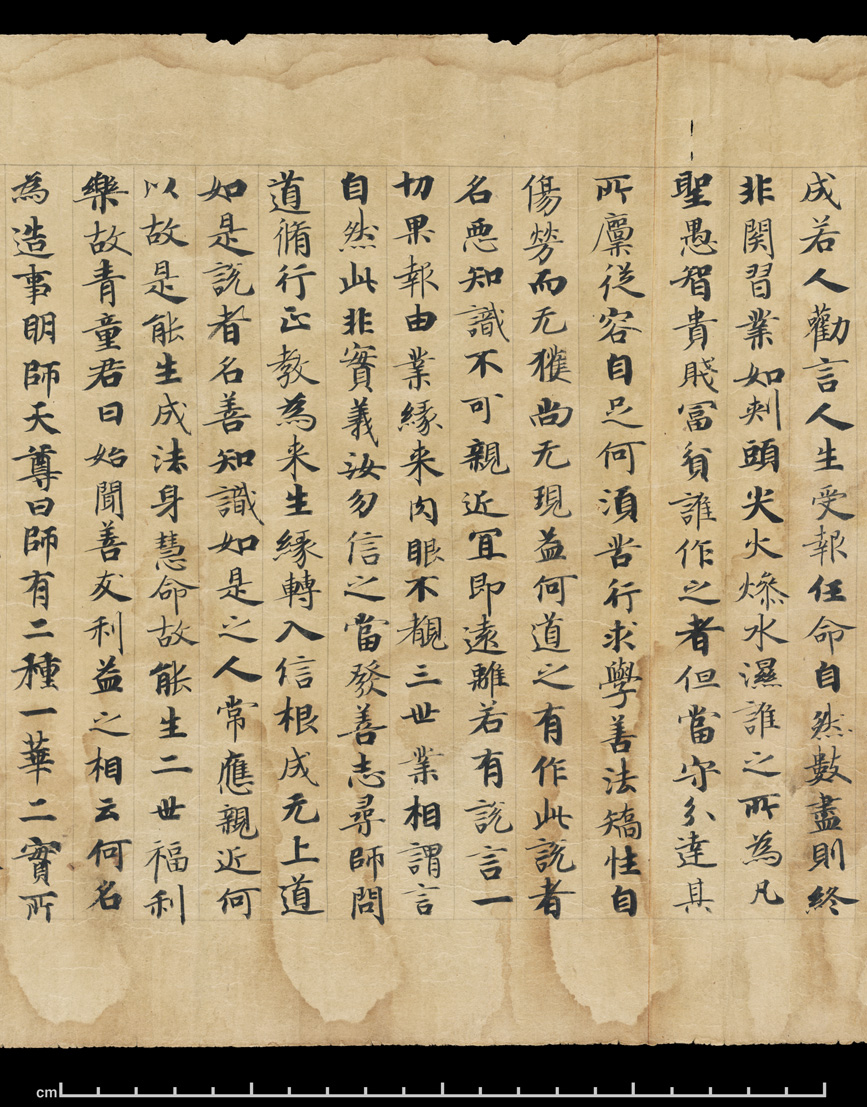 成若人勸言人生受報任命自然數盡則終
非関習業如刾頭尖火燥水濕誰之所為凡
聖愚智貴賎冨貧誰作之者但當守分達其
所廩從容自足何湏苦行求學善法矯性自
傷勞而无獲尚无現益何道之有作此説者
名悪知識不可親近冝即遠離若有説言一
切果報由業縁来肉眼不覩三世業相謂言
自然此非實義汝勿信之當發善志尋師問
道脩行正教為来生縁轉入信根成无上道
如是説者名善知識如是之人常應親近何
以故是能生成法身慧命故能生二世福利
樂故青童君曰始聞善友利益之相云何名
為造事明師天尊曰師有二種一華二實所
cm